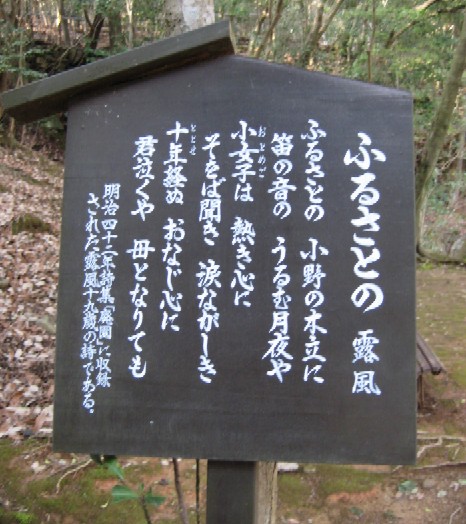 ふるさとの 露風
ふるさとの 小野の木立に
笛の音の うるむ月夜や
小女子は 熱き心に
そをば聞き 涙ながしき
十年経ぬ おなじ心に
君泣くや 母となりても
明治四十二年詩集「廃園」に収録
された露風十九歳の詩である。
おとめご
ととせ